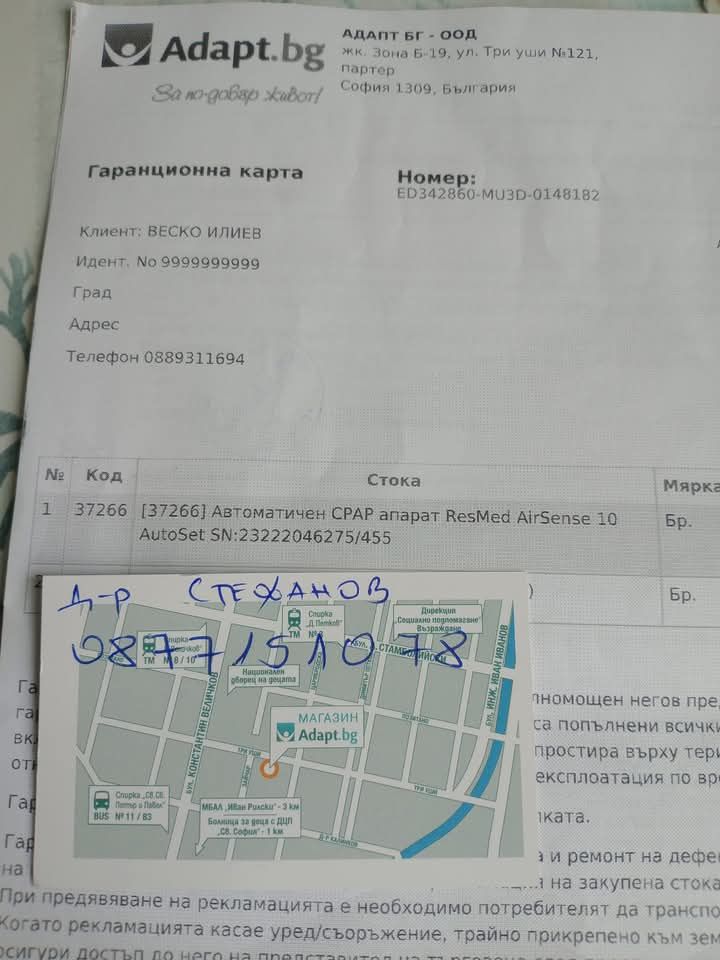 Adapt.bg
За по-добър живот!
АДАПТ БГ - ООД
жк. Зона Б-19, ул. Три уши №121,
партер
София 1309, България
Гаранционна карта
Номер:
ED342860-MU3D-0148182
Клиент: ВЕСКО ИЛИЕВ
Идент. No 9999999999
Град
Адрес
Телефон 0889311694
№ Код Стока Мярка
1 37266 [37266] Автоматичен CPAP апарат ResMed AirSense 10 Бр.
AutoSet SN:23222046275/455
2 ) Бр.
Д-р СТЕФАНОВ
0877151078
Спирка
"Д. Петков"
TM № 8
Дирекция
"Социално подпомагане"
Възраждане
Спирка
TM № 8 / 10
БУЛ. СТАМБОЛИЙСКИ
Национален
дворец на децата
БУЛ. КОНСТАНТИН ВЕЛИЧКОВ
БУЛ. ИНЖ. ИВАН ИВАНОВ
МАГАЗИН
Adapt.bg
ПОЗИТАНО
ТРИ УШИ
ЗАЙЧАР
ТРИ УШИ
Спирка „Св.Св.
Петър и Павел"
BUS № 11 / 83
МБАЛ „Иван Рилски" - 3 км
Болница за деца с ДЦП
"Св. София" - 1 км
Д-Р КАЛИНКОВ
лномощен негов пре
са попълнени всички
простира върху тери
експлоатация по вре
лката.
Гар
а и ремонт на дефе
на закупена стока
При предявяване на рекламацията е необходимо потребителят да транспо
Когато рекламацията касае уред/съоръжение, трайно прикрепено към зем
осигури достъп до него на представител на